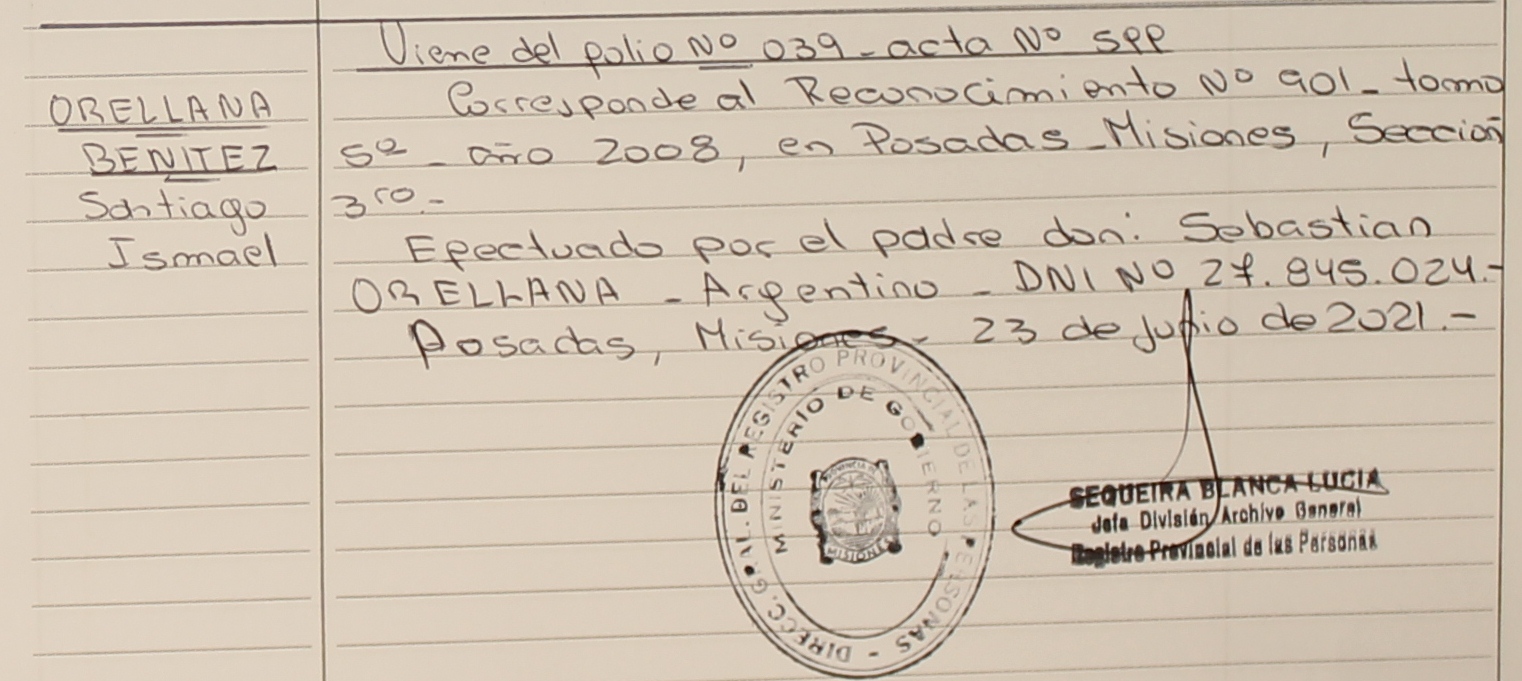 Viene del folio Nº 039 - acta Nº SPP
ORELLANA
BENITEZ
Santiago
Ismael
Corresponde al Reconocimiento Nº 901 - tomo
5º - año 2008, en Posadas - Misiones, Sección
3ra.-
Efectuado por el padre don: Sebastian
ORELLANA - Argentino - DNI Nº 27.845.024.-
Posadas, Misiones - 23 de Julio de 2021.-
DIRECC. GRAL. DEL REGISTRO PROVINCIAL DE LAS PERSONAS -
MINISTERIO DE GOBIERNO
PROVINCIA DE
MISIONES
SEQUEIRA BLANCA LUCIA
Jefa División Archivo General
Registro Provincial de las Personas